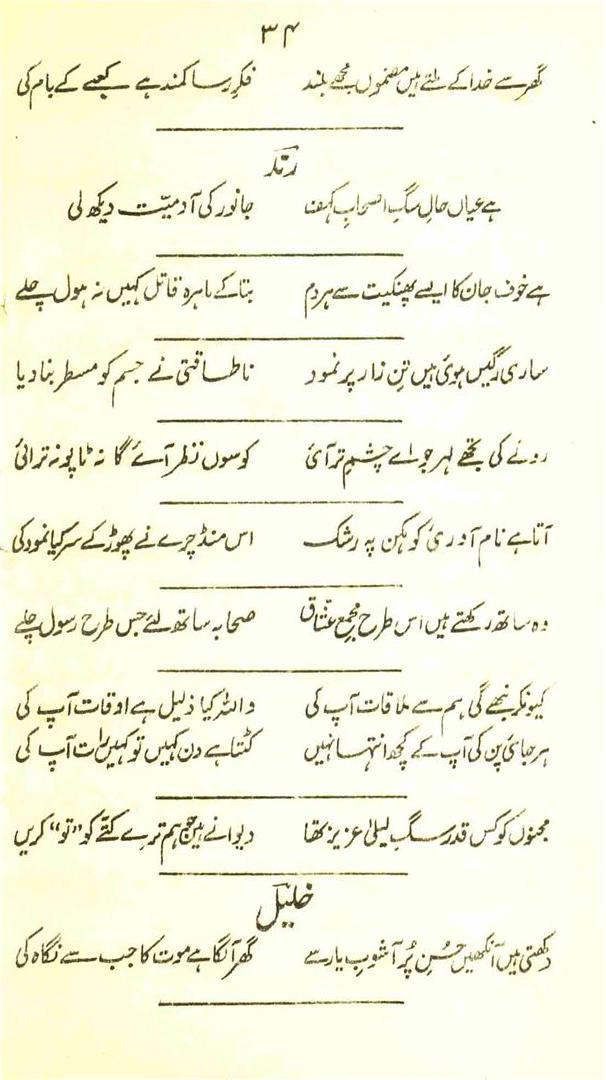 ۳۴
گھر سے خدا کے ملئے ہیں مضموں مجھے بلند فکرِ رسا کمند ہے کعبے کے بام کی
رند
ہے عیاں حالِ سگِ اصحابِ کہف جانور کی آدمیّت دیکھ لی
ہے خوف جان کا ایسے پھنکیت سے ہردم بتا کے باہرہ قاتل کہیں نہ ہول چلے
ساری رگیں ہوئی ہیں تنِ زار پر نمود ناطاقتی نے جسم کو مسطر بنا دیا
رونے کی تجھے لہر جو اے چشمِ تر آئی کوسوں نظر آئے گا نہ ٹاپو نہ ترائی
آتا ہے نام آوریٔ کوہکن پہ رشک اس منڈچرے نے پھوڑ کے سر کیا نمود کی
وہ ساتھ رکھتے ہیں اس طرح مجمعِ عشّاق صحابہ ساتھ لئے جس طرح رسول چلے
کیونکر نبھے گی ہم سے ملاقات آپ کی واللہ کیا ذلیل ہے اوقات آپ کی
ہرجائی پن کی آپ کے کچھ انتہا نہیں کٹتا ہے دن کہیں تو کہیں رات آپ کی
مجنوں کو کس قدر سگِ لیلیٰ عزیز تھا دیوانے ہیں جو ہم ترے کتّے کو "تو" کریں
خلیل
دکھتی ہیں آنکھیں حسُنِ پُر آشوبِ یار سے گھر آنگا ہے موت کا جب سے نگاہ کی